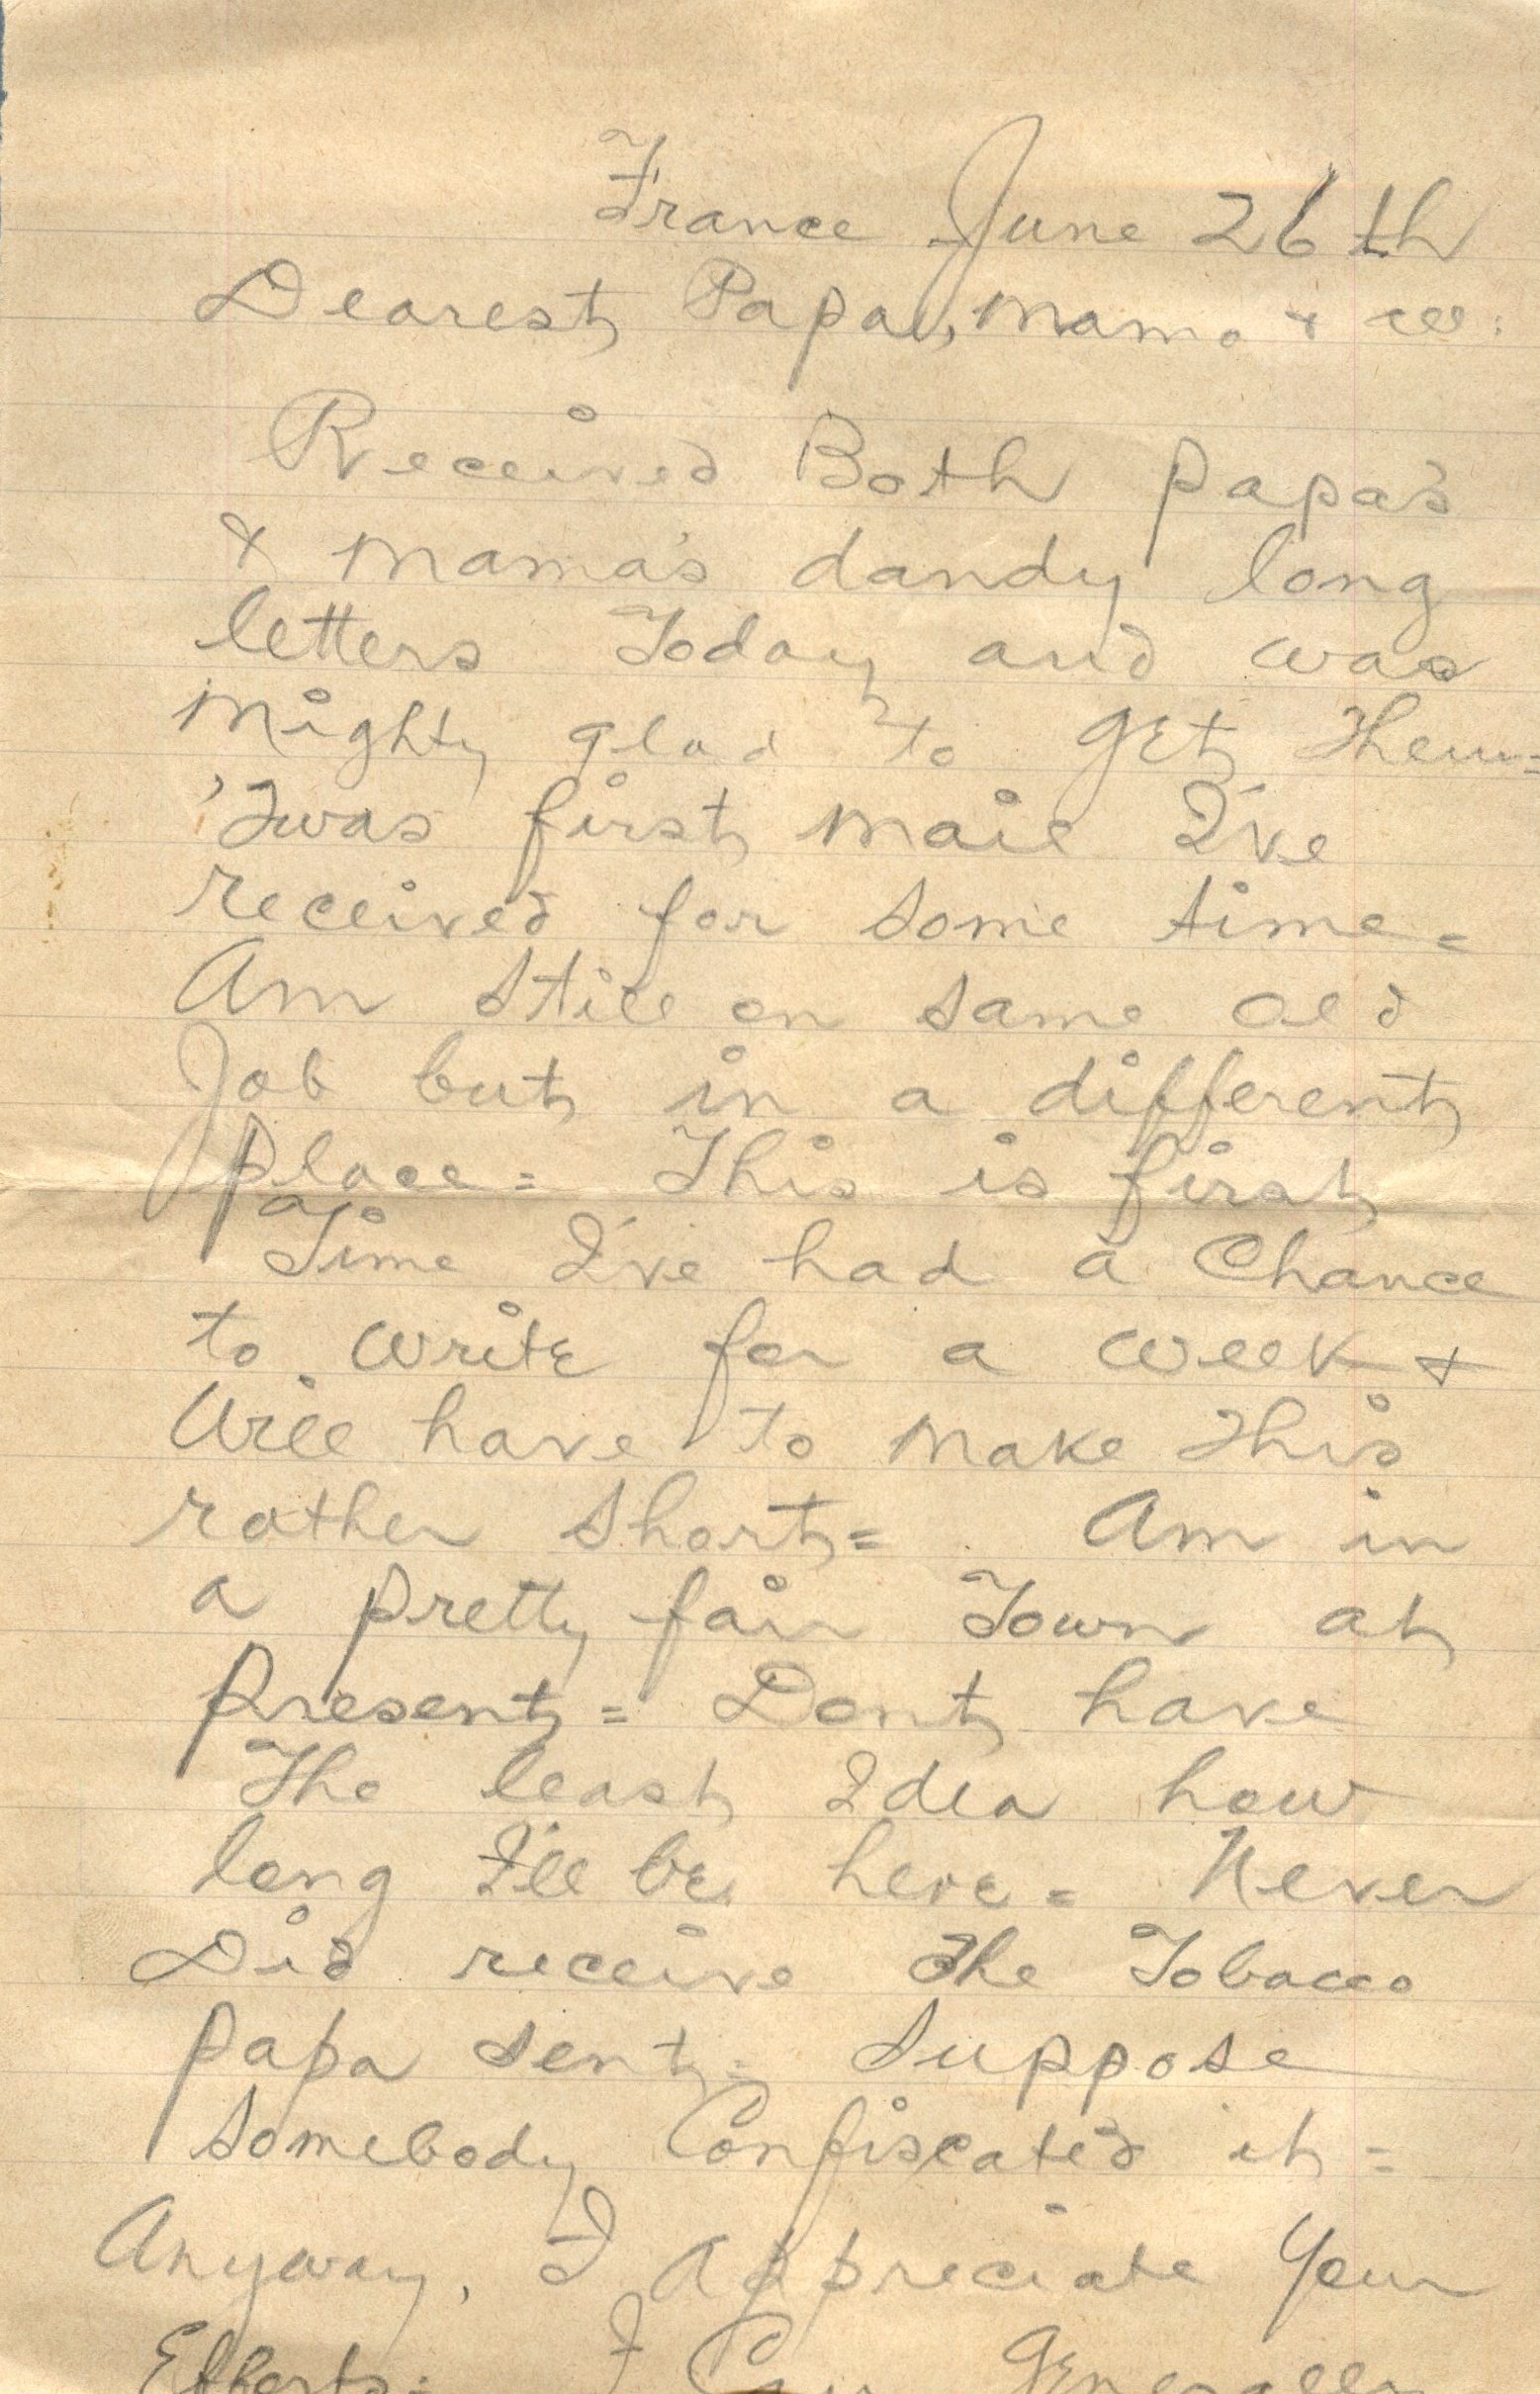 France June 26th
Dearest Papa, Mama & all:
Received Both Papa's
& Mama's dandy long
letters Today and was
Mighty glad to get Them=
'Twas first mail I've
received for some time=
Am still on same old
Job but in a different
place= This is first
Time I've had a Chance
to write for a week &
Will have to make This
rather short= Am in
a pretty fair Town at
Present= Dont have
The least Idea how
long I'll be here= Never
Did receive The Tobacco
papa sent= Suppose
somebody Confiscated it=
Anyway, I Appreciate Your
Efforts= I Can Generally